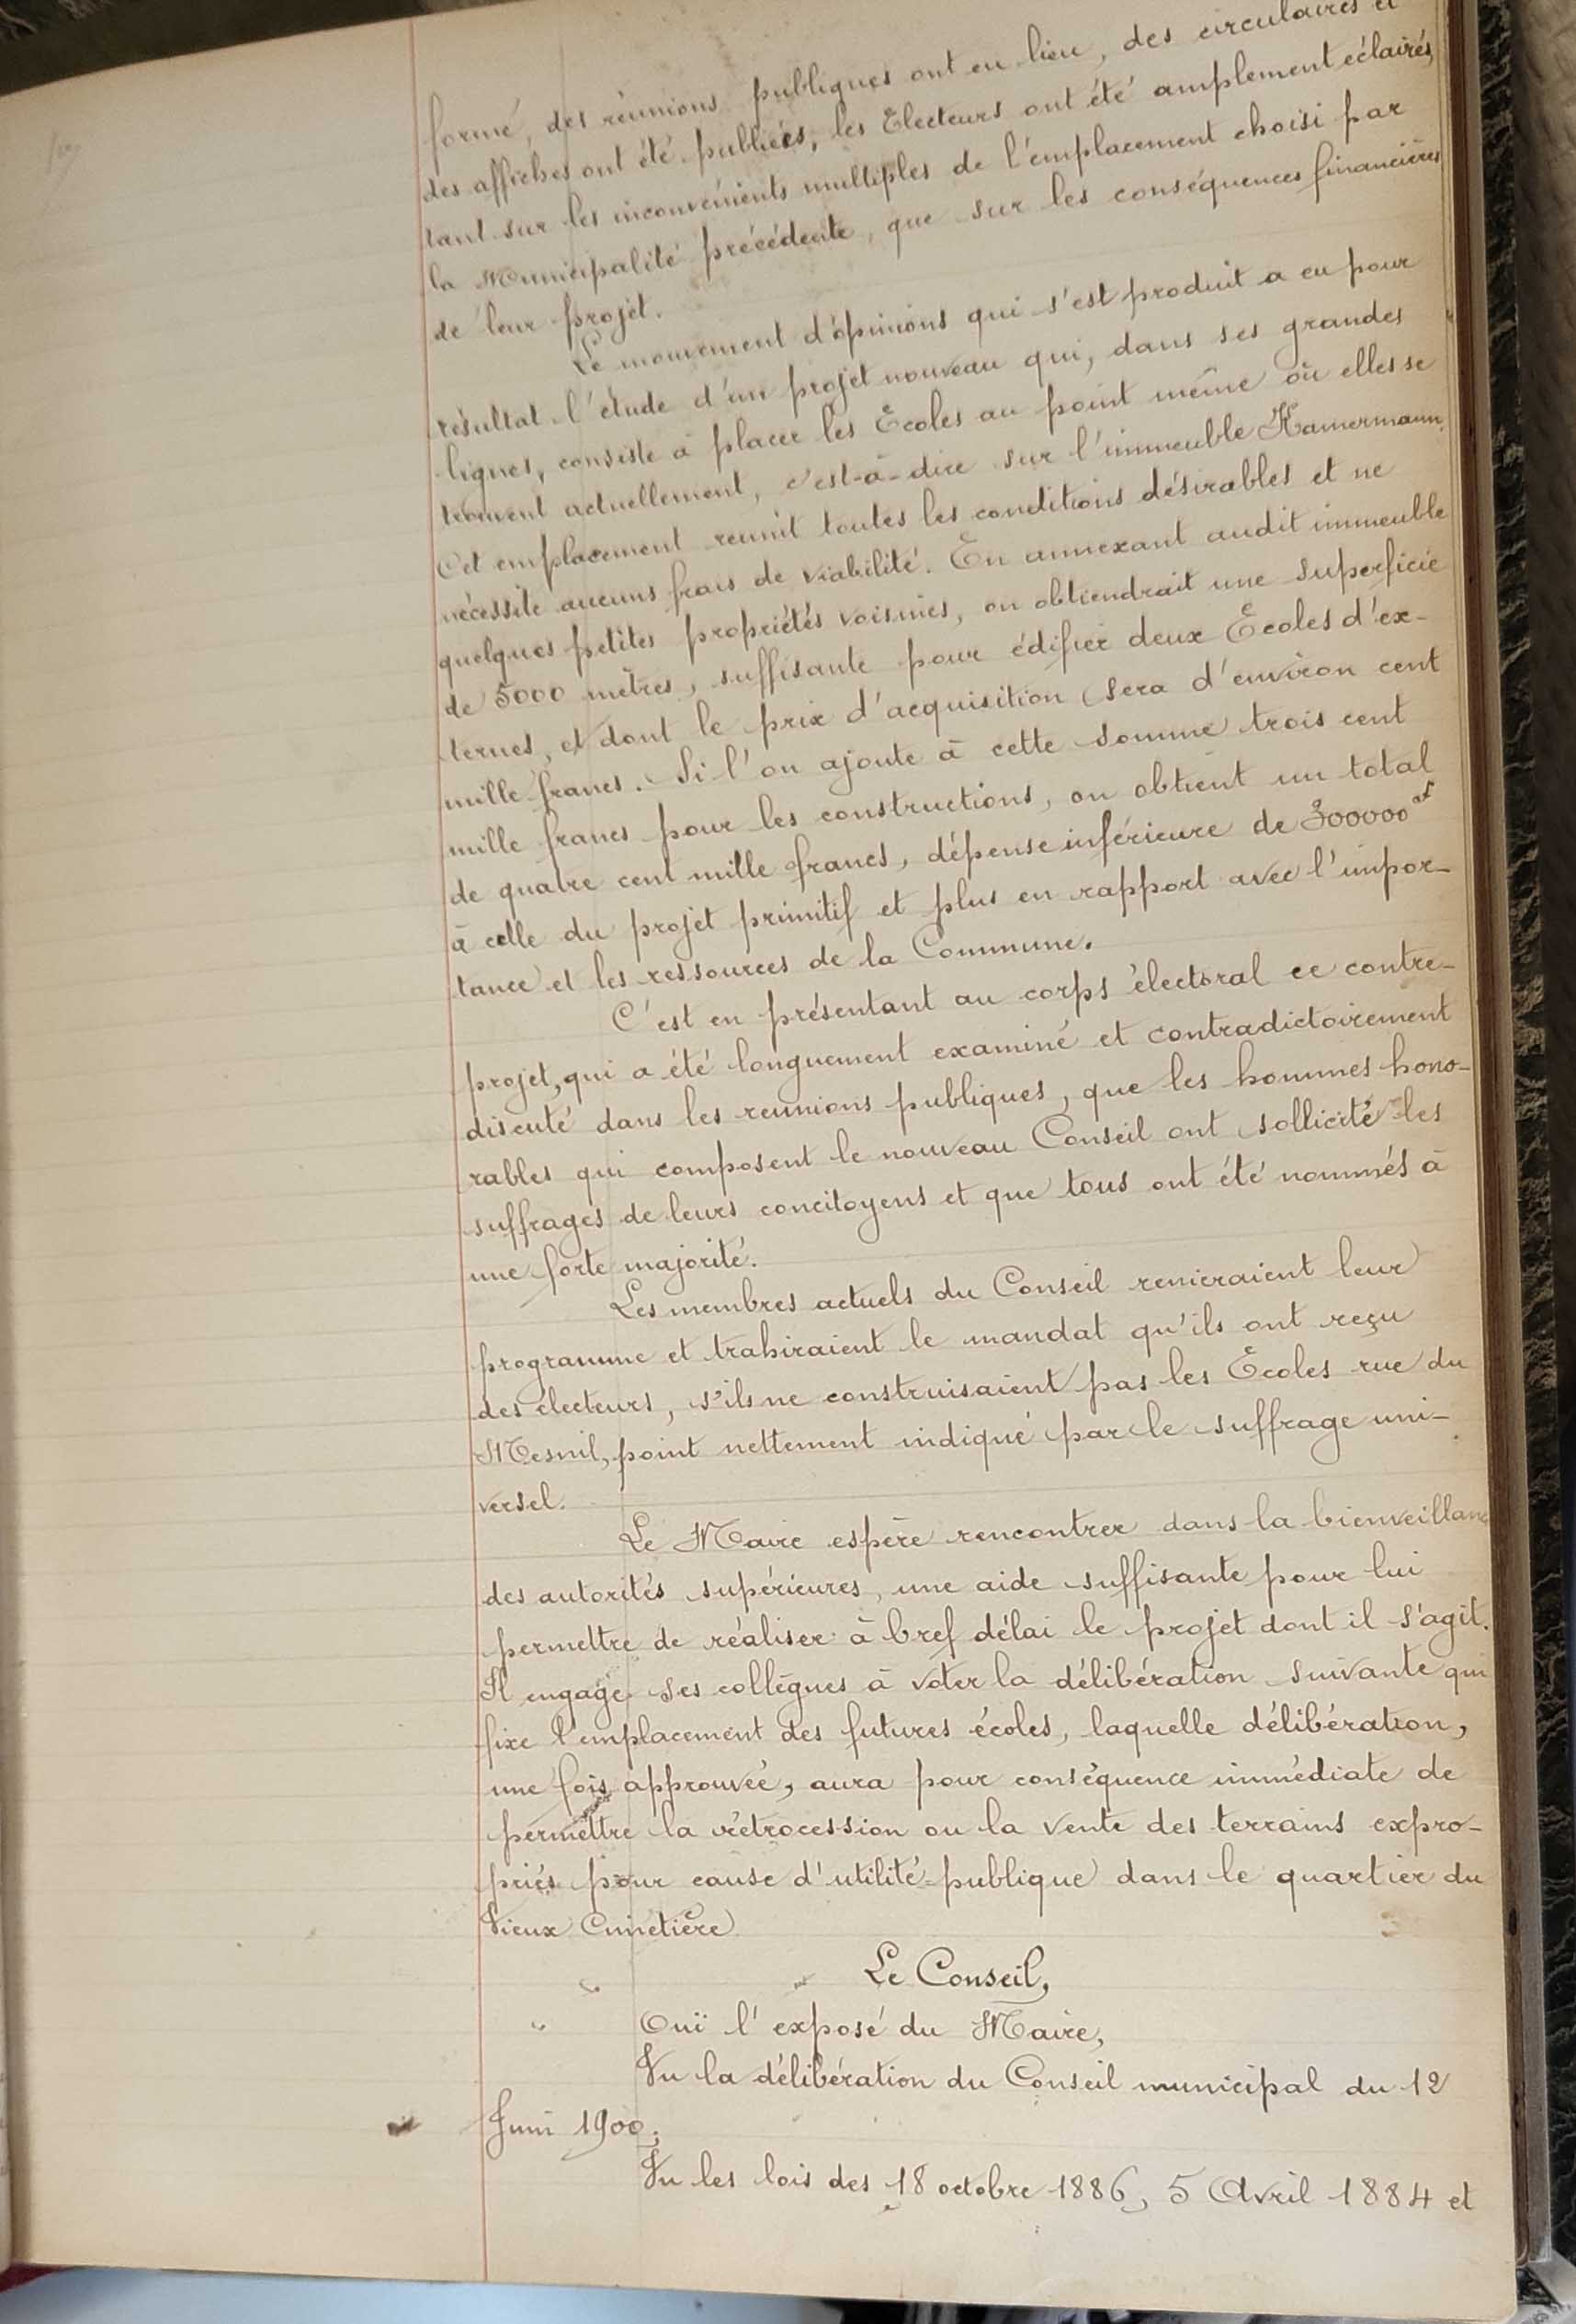 formé, des réunions publiques ont eu lieu, des circulaires et
des affiches ont été publiées, les Electeurs ont été amplement éclairés,
tant sur les inconvénients multiples de l'emplacement choisi par
la Municipalité précédente, que sur les conséquences financières
de leur projet.
Le mouvement d'opinions qui s'est produit a eu pour
résultat l'étude d'un projet nouveau qui, dans ses grandes
lignes, consiste à placer les Ecoles au point même où elles se
trouvent actuellement, c'est-à-dire sur l'immeuble Kamermann.
Cet emplacement reunit toutes les conditions désirables et ne
nécessite aucuns frais de viabilité. En annexant audit immeuble
quelques petites propriétés voisines, on obtiendrait une superficie
de 5000 mètres, suffisante pour édifier deux Ecoles d'ex-
ternes, et dont le prix d'acquisition sera d'environ cent
mille francs. Si l'on ajoute à cette somme trois cent
mille francs pour les constructions, on obtient un total
de quatre cent mille francs, dépense inférieure de 300000
à celle du projet primitif et plus en rapport avec l'impor-
tance et les ressources de la Commune.
C'est en présentant au corps électoral ce contre-
projet, qui a été longuement examiné et contradictoirement
discuté dans les reunions publiques, que les hommes hono-
rables qui composent le nouveau Conseil ont sollicité les
suffrages de leurs concitoyens et que tous ont été nommés à
une forte majorité.
Les membres actuels du Conseil renieraient leur
programme et trahiraient le mandat qu'ils ont reçu
des électeurs, s'ils ne construisaient pas les Ecoles rue du
Mesnil, point nettement indiqué par le suffrage uni-
versel.
Le Maire espère rencontrer dans la bienveillanc
des autorités supérieures, une aide suffisante pour lui
permettre de réaliser à bref délai le projet dont il s'agit.
Il engage ses collègues à voter la délibération suivante qui
fixe l'emplacement des futures écoles, laquelle délibération,
une fois approuvée, aura pour conséquence immédiate de
permettre la rétrocession ou la vente des terrains expro-
priés pour cause d'utilité publique dans le quartier du
Vieux Cimetière
Le Conseil,
Ouï l'exposé du Maire,
Vu la délibération du Conseil municipal du 12
Juin 1900;
Vu les lois des 18 octobre 1886, 5 Avril 1884 et